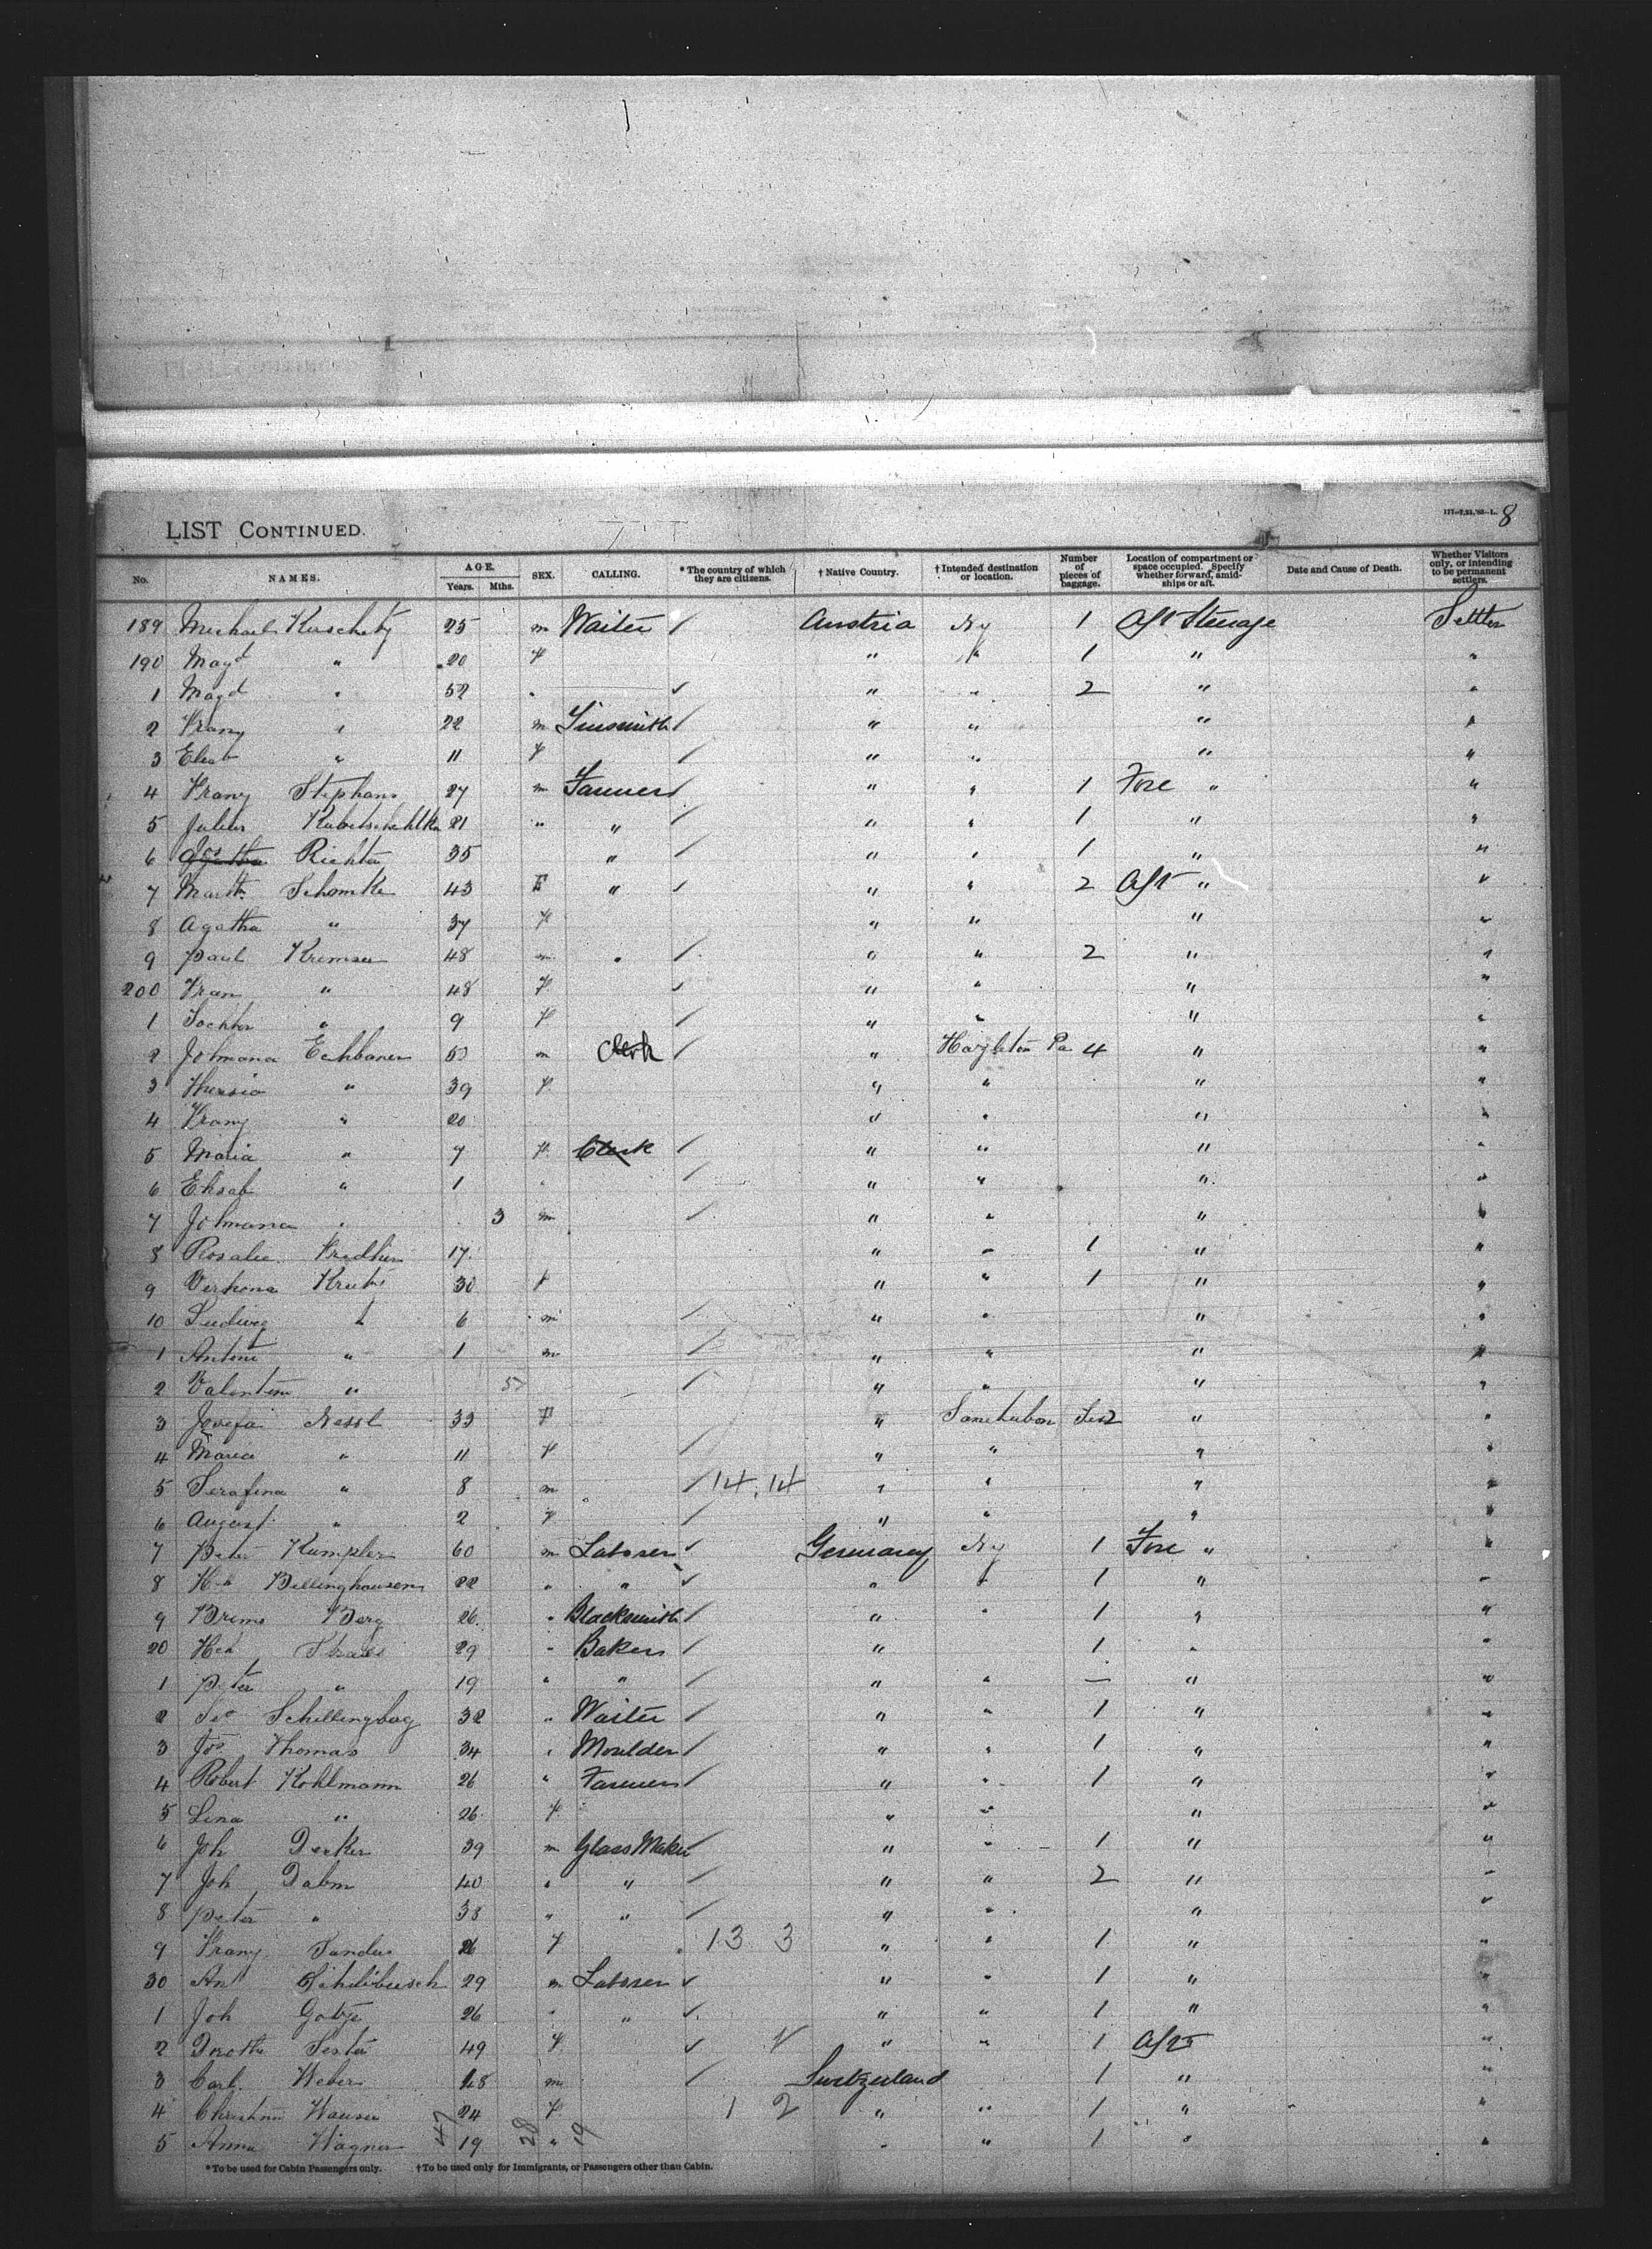 177-7,21,'92-L. 8
LIST CONTINUED.
No. NAMES. AGE. Years. Mths. SEX. CALLING. *The country of which they are citizens. †Native Country. †Intended destination or location. Number of pieces of baggage. Location of compartment or space occupied. Specify whether forward, amidships or aft. Date and Cause of Death. Whether Visitors only, or intending to be permanent settlers.
189 Michael 25 m Waiter / Austria Ny 1 Aft Steerage Settler
190 Magd " 20 f " " 1 " "
1 Magd " 52 " ✓ " " 2 " "
2 Franz " 22 m Tinsmith / " " " "
3 Elisab " 11 f / " " " "
4 Franz Stephans 27 m Farmer / " " 1 Fore " "
5 Julius 21 " " / " " 1 " "
6 Jos Richter 35 " / " " 1 " "
7 Martin Schomke 43 " ✓ " " 2 Aft " "
8 Agatha " 37 f " " " "
9 Paul Kremser 48 m " / " " 2 " "
200 Fran " 48 f ✓ " " " "
1 Tochter " 9 f / " " " "
2 Johmana Eichbauer m Clerk / " Hazleton Pa 4 " "
3 " 39 f " " " "
4 Franz " 20 " " " "
5 Maria " 7 f Clerk / " " " "
6 Elisab " 1 " / " " " "
7 Johmana " 3 m / " " " "
8 Rosalie 17 " " 1 " "
9 30 f " " 1 " "
10 Ludwig " 6 m / " " " "
1 Anton " 1 m / " " " "
2 Valentin " 5 / " " " "
3 Josefa Nessl 33 F " 2 " "
4 Maria " 11 f / " " " "
5 Serafina " 8 m / 14.14 " " " "
6 August " 2 f / " " " "
7 Peter Kumpler 60 m Laborer ✓ Germany Ny 1 Fore " "
8 Billinghausen 22 " " ✓ " " 1 " "
9 Bruno Berg 26 " Blacksmith / " " 1 " "
20 29 " Baker / " 1 " "
1 Peter " 19 " " / " " — " "
2 32 " Waiter / " " 1 " "
3 Jos Thomas 34 " Moulder / " " 1 " "
4 Robert Kohlmann 26 " Farmer / " " 1 " "
5 Lina " 26 f " " " "
6 Joh Decker 39 m Glass Maker / " " 1 " "
7 Joh Dahm 40 " " / " " 2 " "
8 Peter " 38 " " / " " " "
9 Franz Sander 26 f 13 3 " " 1 " "
30 29 m Laborer ✓ " " 1 " "
1 Joh 26 " " ✓ " " 1 " "
2 49 f ✓ " " 1 Aft "
3 Carl Weber 48 m / Switzerland 1 " "
4 24 f 1 2 " " 1 " "
5 Anna Wagner 19 " " " 1 " "
47 28 19
*To be used for Cabin Passengers only. †To be used only for Immigrants, or Passengers other than Cabin.